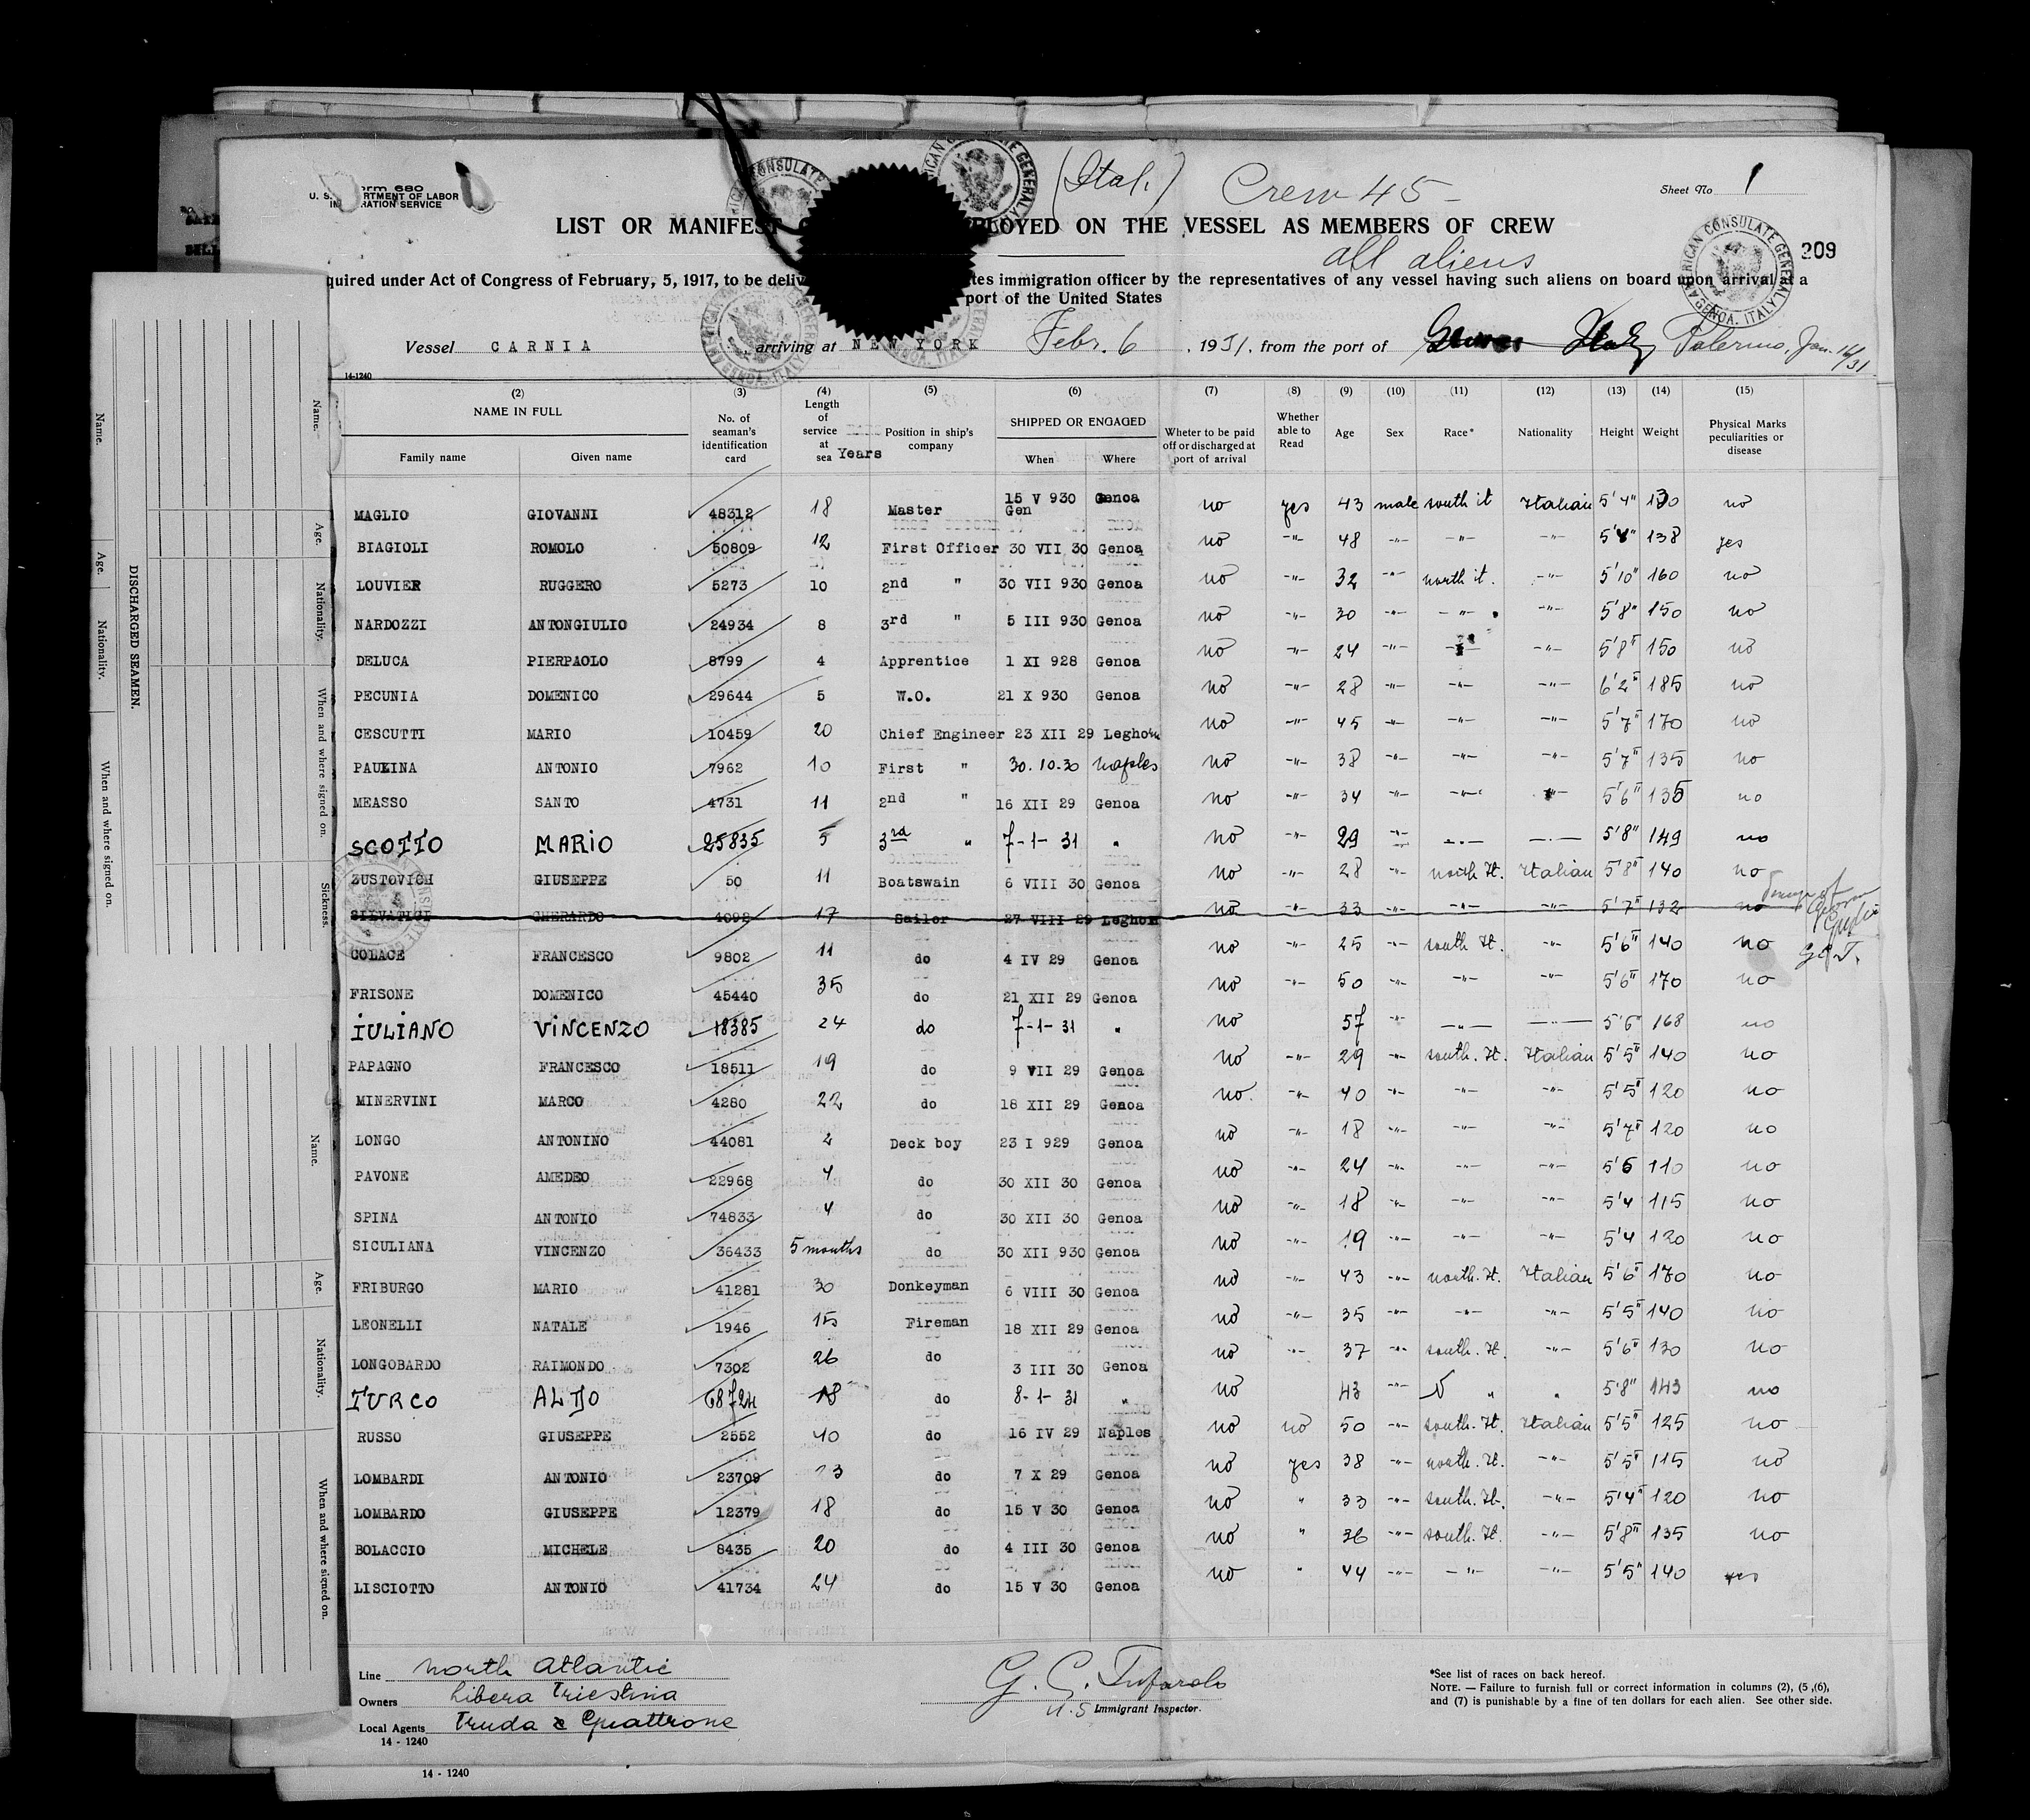 (Ital.) Crew 45 -
Sheet No 1
U. S. LABOR
LIST OR MANIFEST ON THE VESSEL AS MEMBERS OF CREW
all aliens
209
under Act of Congress of February, 5, 1917, to be immigration officer by the representatives of any vessel having such aliens on board upon arrival at a
port of the United States
Vessel CARNIA arriving at NEW YORK Febr. 6, 1931, from the port of Palermo, Jan. 16/31
14-1240
(2) (3) (4) (5) (6) (7) (8) (9) (10) (11) (12) (13) (14) (15)
NAME IN FULL
Family name Given name
No. of seaman's identification card
Length of service at sea Years
Position in ship's company
SHIPPED OR ENGAGED
When Where
Wheter to be paid off or discharged at port of arrival
Whether able to Read
Age Sex Race* Nationality Height Weight
Physical Marks peculiarities or disease
MAGLIO GIOVANNI 48312 18 Master 15 V 930 Genoa no yes 43 male south it Italian 5'4" 130 no
Gen
BIAGIOLI ROMOLO 50809 12 First Officer 30 VII 30 Genoa no -"- 48 -"- -"- -"- 138 yes
LOUVIER RUGGERO 5273 10 2nd " 30 VII 930 Genoa no -"- 32 -"- north it. -"- 5'10" 160 no
NARDOZZI ANTONGIULIO 24934 8 3rd " 5 III 930 Genoa no -"- 30 -"- -"- -"- 5'8" 150 no
DELUCA PIERPAOLO 8799 4 Apprentice 1 XI 928 Genoa no -"- 24 -"- -"- -"- 5'8" 150 no
PECUNIA DOMENICO 29644 5 W.O. 21 X 930 Genoa no -"- 28 -"- -"- -"- 6'2" 185 no
CESCUTTI MARIO 10459 20 Chief Engineer 23 XII 29 Leghorn no -"- 45 -"- -"- -"- 5'7" 170 no
PAULINA ANTONIO 7962 10 First " 30.10.30 Naples no -"- 38 -"- -"- -"- 5'7" 135 no
MEASSO SANTO 4731 11 2nd " 16 XII 29 Genoa no -"- 34 -"- -"- -"- 5'6" 135 no
SCOTTO MARIO 25835 5 3rd " 7-1-31 " no -"- 29 -"- -"- -"- 5'8" 149 no
ZUSTOVICH GIUSEPPE 50 11 Boatswain 6 VIII 30 Genoa no -"- 28 -"- north It. Italian 5'8" 140 no
SILVATICI GHERARDO 4092 17 Sailor 27 VIII 29 Leghorn no -"- 33 -"- -"- -"- 5'7" 132 no
COLACE FRANCESCO 9802 11 do 4 IV 29 Genoa no -"- 25 -"- south It. -"- 5'6" 140 no
FRISONE DOMENICO 45440 35 do 21 XII 29 Genoa no -"- 50 -"- -"- -"- 5'6" 170 no
IULIANO VINCENZO 18385 24 do 7-1-31 " no 57 -"- -"- -"- 5'6" 168 no
PAPAGNO FRANCESCO 18511 19 do 9 VII 29 Genoa no -"- 29 -"- south. It. Italian 5'5" 140 no
MINERVINI MARCO 4280 22 do 18 XII 29 Genoa no. -"- 40 -"- -"- -"- 5'5" 120 no
LONGO ANTONINO 44081 2 Deck boy 23 I 929 Genoa no -"- 18 -"- -"- -"- 5'7" 120 no
PAVONE AMEDEO 22968 4 do 30 XII 30 Genoa no -"- 24 -"- -"- -"- 5'6 110 no
SPINA ANTONIO 74833 4 do 30 XII 30 Genoa no -"- 18 -"- -"- -"- 5'4 115 no
SICULIANA VINCENZO 36433 5 months do 30 XII 930 Genoa no -"- 19 -"- -"- -"- 5'4 120 no
FRIBURGO MARIO 41281 30 Donkeyman 6 VIII 30 Genoa no -"- 43 -"- north. It. Italian 5'6" 170 no
LEONELLI NATALE 1946 15 Fireman 18 XII 29 Genoa no -"- 35 -"- -"- -"- 5'5" 140 no
LONGOBARDO RAIMONDO 7302 26 do 3 III 30 Genoa no -"- 37 -"- south. It. -"- 5'6" 130 no
TURCO ALDO 68724 18 do 8-1-31 " no 43 -"- N " " 5'8" 143 no
RUSSO GIUSEPPE 2552 40 do 16 IV 29 Naples no no 50 -"- south. It. Italian 5'5" 125 no
LOMBARDI ANTONIO 23709 13 do 7 X 29 Genoa no yes 38 -"- north. It. -"- 5'5" 115 no
LOMBARDO GIUSEPPE 12379 18 do 15 V 30 Genoa no " 33 -"- south. It. -"- 5'4" 120 no
BOLACCIO MICHELE 8435 20 do 4 III 30 Genoa no " 36 -"- south. It. -"- 5'8" 135 no
LISCIOTTO ANTONIO 41734 24 do 15 V 30 Genoa no " 44 -"- -"- -"- 5'5" 140 yes
Line North Atlantic
Owners Libera Triestina
Local Agents Truda & Quattrone
14 - 1240
G. C. Tufarolo
U.S Immigrant Inspector.
*See list of races on back hereof.
NOTE. — Failure to furnish full or correct information in columns (2), (5 ,(6),
and (7) is punishable by a fine of ten dollars for each alien. See other side.
14 - 1240
DISCHARGED SEAMEN.
Name. Age. Nationality. When and where signed on. Sickness.
Name. Age. Nationality. When and where signed on.
Name. Age. Nationality. When and where signed on.
AMERICAN CONSULATE GENERAL
GENOA, ITALY